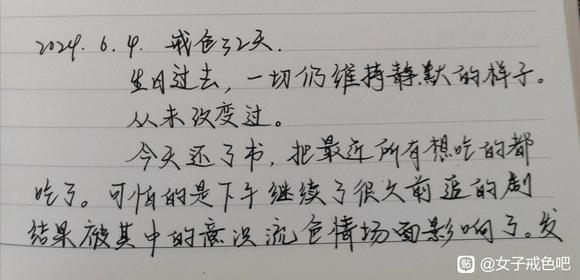 2024.6.4. 戒色32天.
生日过去，一切仍维持静默的样子。
从未改变过。
今天还了书，把最近所有想吃的都
吃了。可怕的是下午继续了很久前追的剧
结果被其中的意识流色情场面影响了。发
贴吧 @女子戒色吧